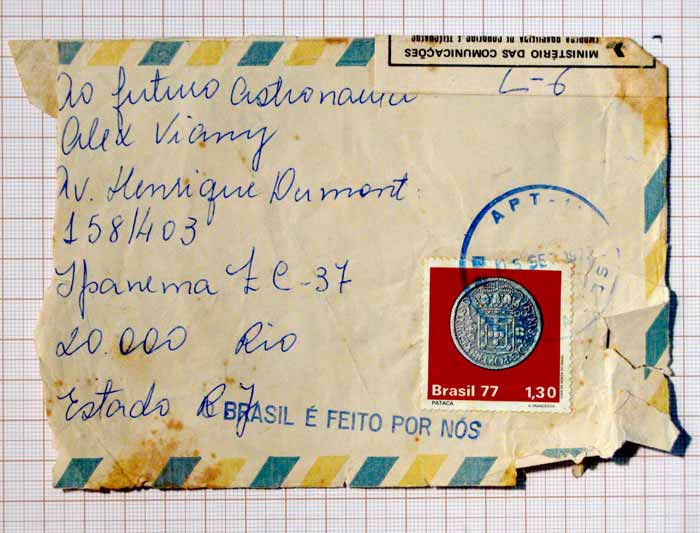 MINISTÉRIO DAS COMUNICAÇÕES
EMPRESA BRASILEIRA DE CORREIOS E TELÉGRAFOS
L-6
Ao futuro Astronauta
Alex Viany
Av. Henrique Dumont
158/403
Ipanema ZC-37
20.000 Rio
Estado RJ
APT-
BRASIL É FEITO POR NÓS
Brasil 77 1,30
PATACA